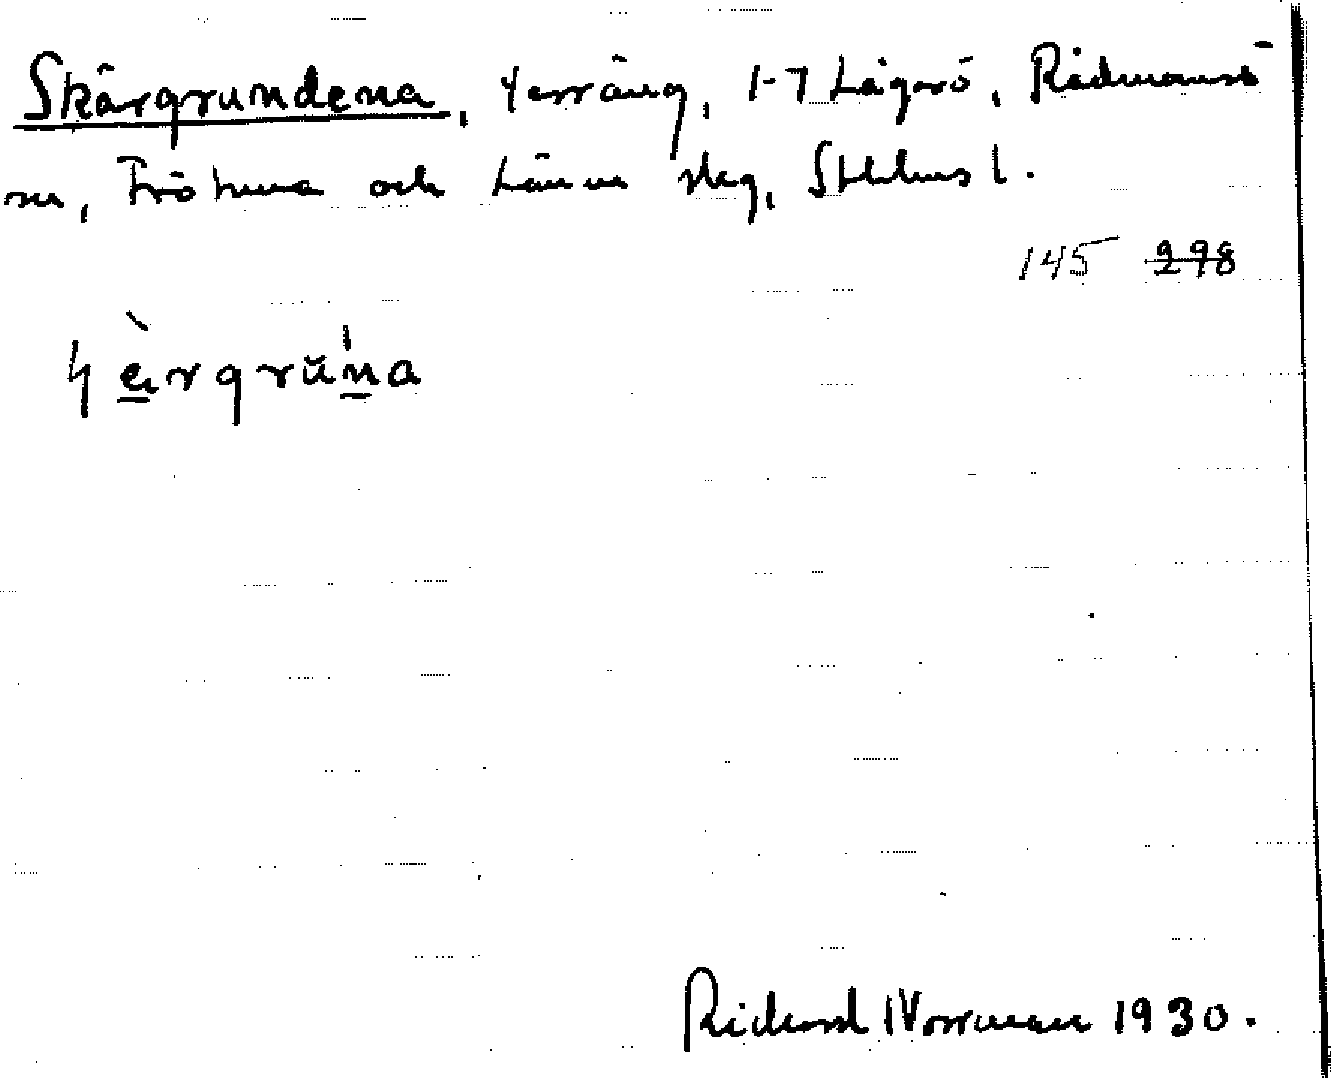 Skärgrundena, terräng, 1-7 Lågarö, Rådmansö
sn, Frötuna och Länna skg, Sthlms l.
145 298
ɧèrgrŭna
Rickard Norrman 1930.